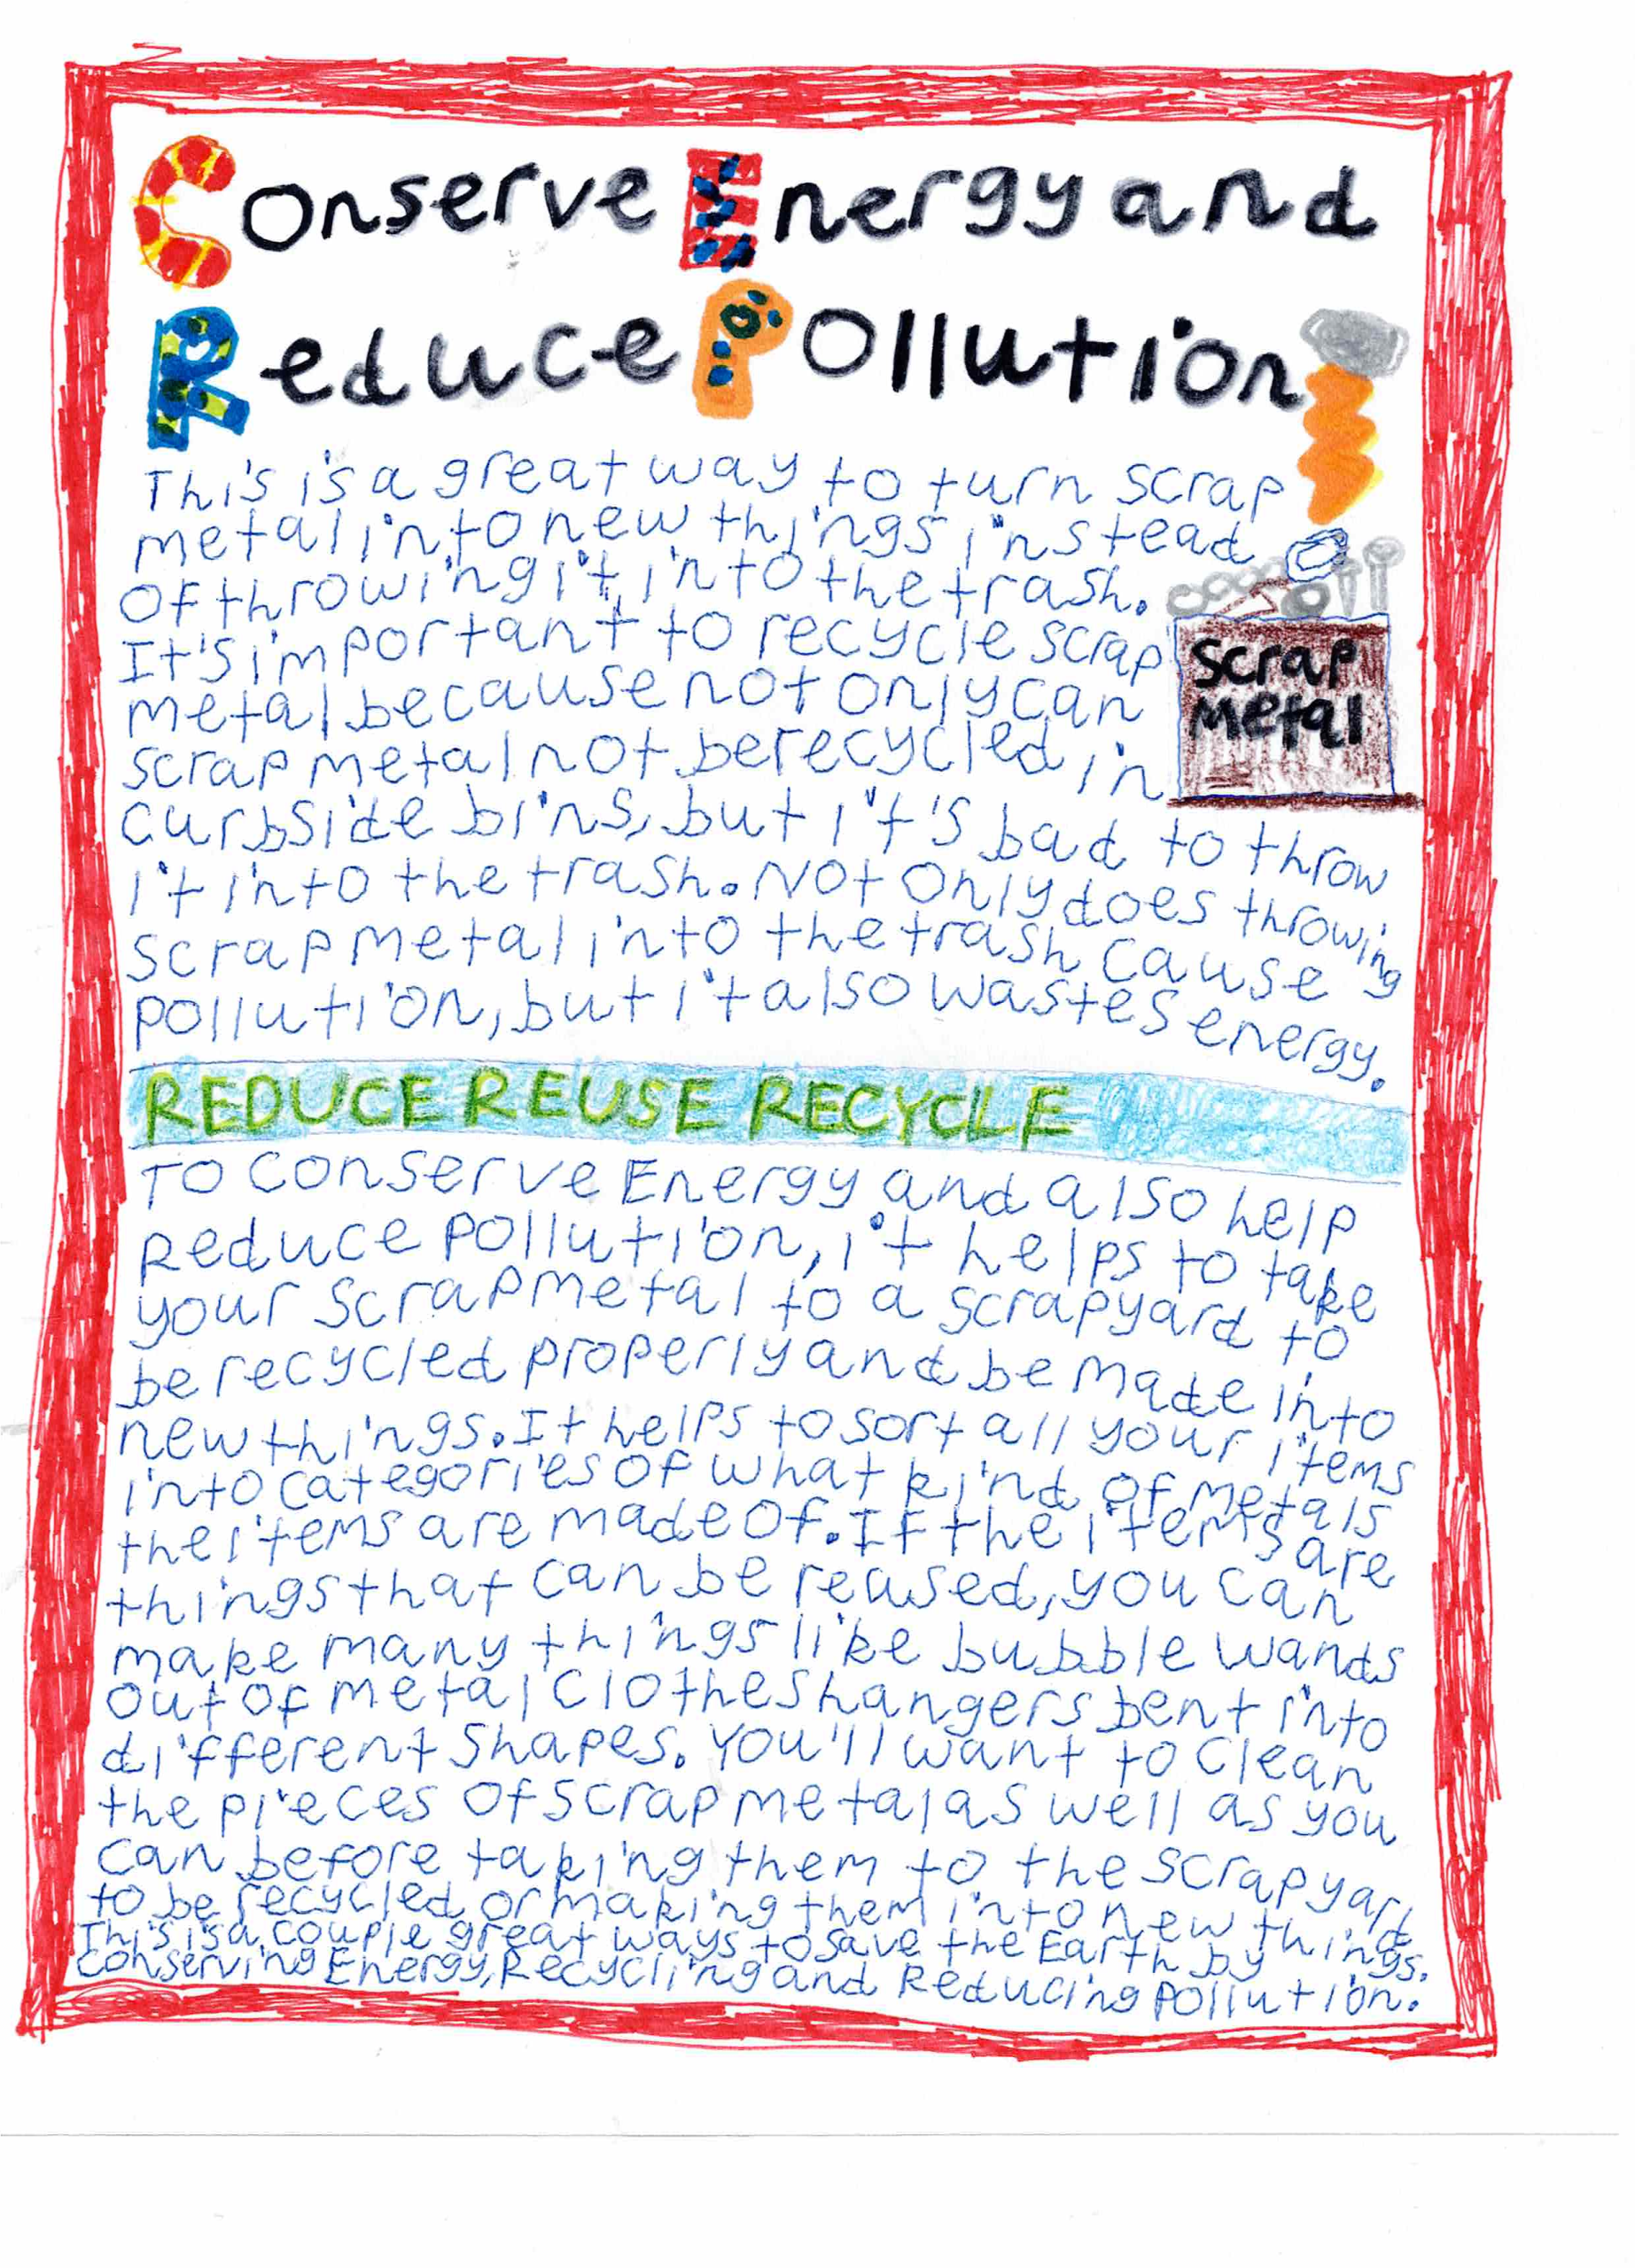 Conserve Energy and
Reduce Pollution
This is a great way to turn scrap
metal into new things instead
of throwing it into the trash.
It's important to recycle scrap
metal because not only can
scrap metal not be recycled in
curbside bins, but it's bad to throw
it into the trash. Not only does throwing
scrap metal into the trash cause
pollution, but it also wastes energy.
Scrap
Metal
REDUCE REUSE RECYCLE
To conserve Energy and also help
Reduce Pollution, it helps to take
your scrap metal to a scrapyard to
be recycled properly and be made into
new things. It helps to sort all your items
into categories of what kind of metals
the items are made of. If the items are
things that can be reused, you can
make many things like bubble wands
out of metal clothes hangers bent into
different shapes. You'll want to clean
the pieces of scrap metal as well as you
can before taking them to the scrapyard
to be recycled or making them into new things.
This is a couple great ways to save the Earth by
conserving Energy, Recycling and Reducing Pollution.